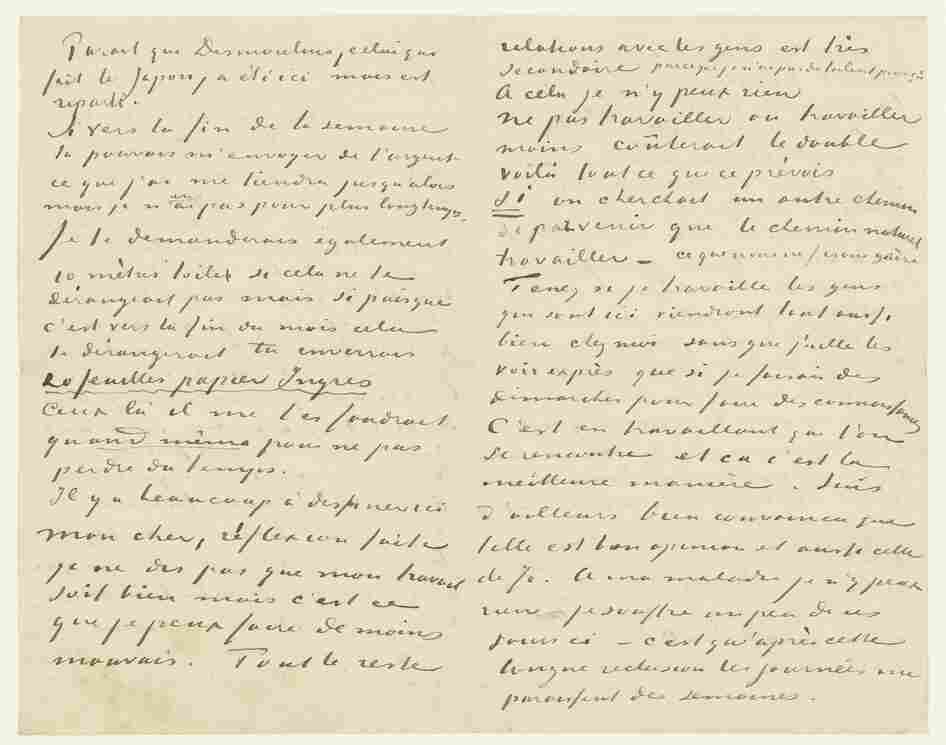 Parait que Desmoulins, celui qui
fait le Japon, a été ici mais est
reparti.
Si vers la fin de la semaine
tu pouvais m'envoyer de l'argent
ce que j'ai me tiendra jusqu'alors
mais je n'en ai pas pour plus longtemps.
Je te demanderais également
10 mètres toile si cela ne te
dérangeait pas mais si puisque
c'est vers la fin du mois cela
te dérangerait tu enverrais
20 feuilles papier Ingres
Ceux là il me les faudrait
quand même pour ne pas
perdre du temps.
Il y a beaucoup à dessiner ici
mon cher, réflexion faite
je ne dis pas que mon travail
soit bien mais c'est ce
que je peux faire de moins
mauvais. Tout le reste
relations avec les gens est très
secondaire parceque je n'ai pas de talent pour ça
A cela je n'y peux rien
ne pas travailler ou travailler
moins coûterait le double
voilà tout ce que ce prévois
Si on cherchait un autre chemin
de parvenir que le chemin naturel
travailler – ce que nous ne
Tenez si je travaille les gens
qui sont ici viendront tout aussi
bien chez moi sans que j'aille les
voir exprès que si je faisais des
démarches pour faire des connaissances
C'est en travaillant que l'on
se rencontre et ca c'est la
meilleure manière. Suis
d'ailleurs bien convaincu que
telle est ton opinion et aussi celle
de Jo. A ma maladie je n'y peux
rien – je souffre un peu de ces
jours ci – c'est qu'après cette
longue reclusion les journées me
paraissent des semaines.